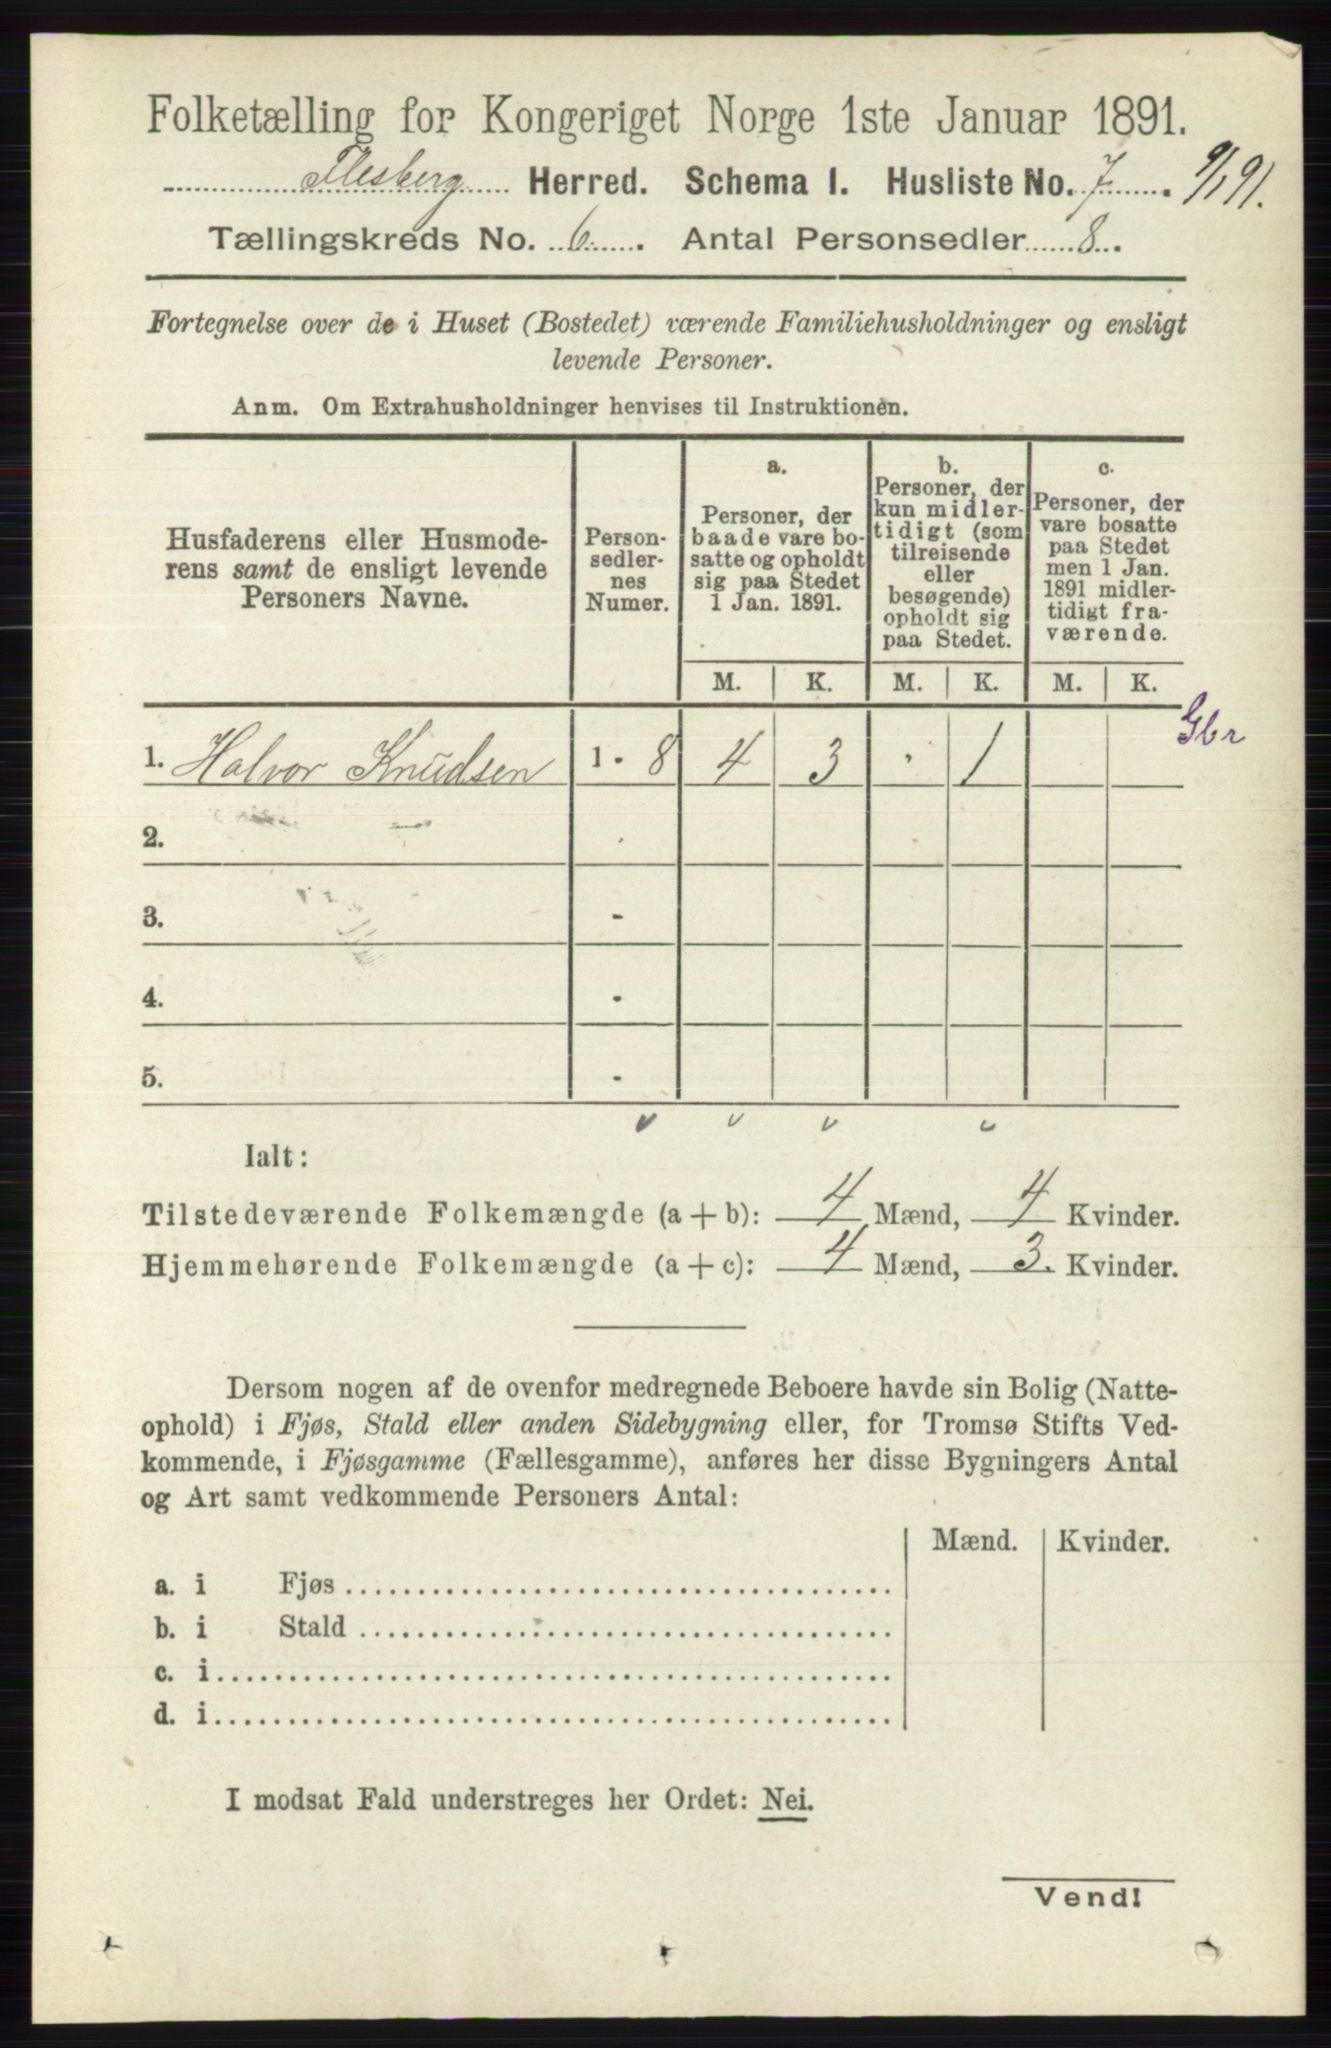 Folketælling for Kongeriget Norge 1ste Januar 1891.
Flesberg Herred. Schema I. Husliste No. 7. 9/1 91.
Tællingskreds No. 6. Antal Personsedler 8.
Fortegnelse over de i Huset (Bostedet) værende Familiehusholdninger og ensligt
levende Personer.
Anm. Om Extrahusholdninger henvises til Instruktionen.
Husfaderens eller Husmode-
rens samt de ensligt levende
Personers Navne.
Person-
sedler-
nes
Numer.
a.
Personer, der
baade vare bo-
satte og opholdt
sig paa Stedet
1 Jan. 1891.
b.
Personer, der
kun midler-
tidigt (som
tilreisende
eller
besøgende)
opholdt sig
paa Stedet.
c.
Personer, der
vare bosatte
paa Stedet
men 1 Jan.
1891 midler-
tidigt fra-
værende.
M. K. M. K. M. K.
Gbr
1. Halvor Knudsen 1 - 8 4 3 . 1
2. -
3. -
4. -
5. -
Ialt:
Tilstedeværende Folkemængde (a + b): 4 Mænd, 4 Kvinder.
Hjemmehørende Folkemængde (a + c): 4 Mænd, 3. Kvinder.
Dersom nogen af de ovenfor medregnede Beboere havde sin Bolig (Natte-
ophold) i Fjøs, Stald eller anden Sidebygning eller, for Tromsø Stifts Ved-
kommende, i Fjøsgamme (Fællesgamme), anføres her disse Bygningers Antal
og Art samt vedkommende Personers Antal:
Mænd. Kvinder.
a. i Fjøs
b. i Stald
c. i
d. i
I modsat Fald understreges her Ordet: Nei.
Vend!